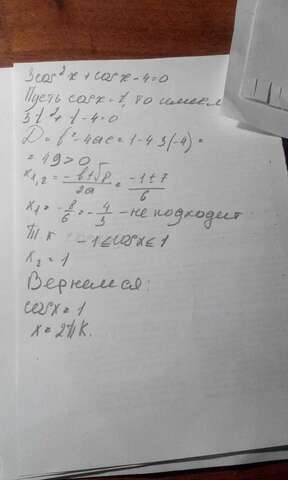 3cos²x+cosx-4=0
Пусть cosx=t, то имеем
3t²+t-4=0
D=b²-4ac=1-4·3(-4)=
=49>0
x₁,₂=(-b±√D)/2a=(-1±7)/6
x₁=-8/6=-4/3-не подходит
т.к -1≤cosx≤1
x₂=1
Вернемся:
cosx=1
x=2πk.